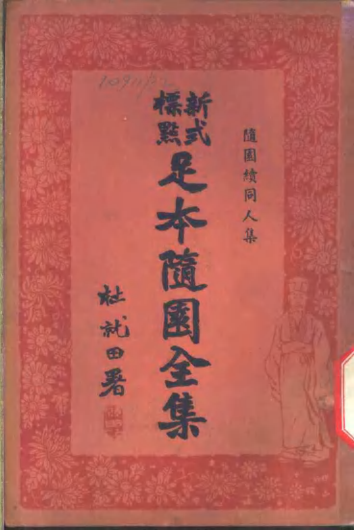 隨園續同人集
新式標點
足本隨園全集
杜就田署